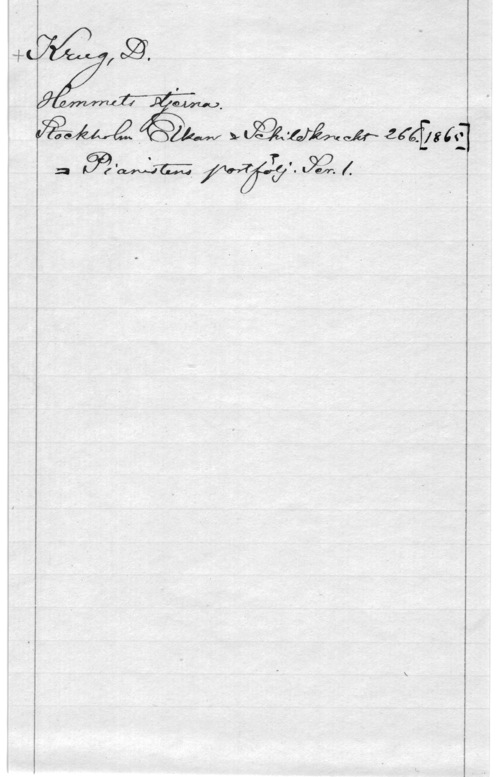 + Krug, D.
Hemmets stjerna.
Stockholm Elkan & Schildknecht 266. [1865]
= Pianistens portfölj. Ser. 1.